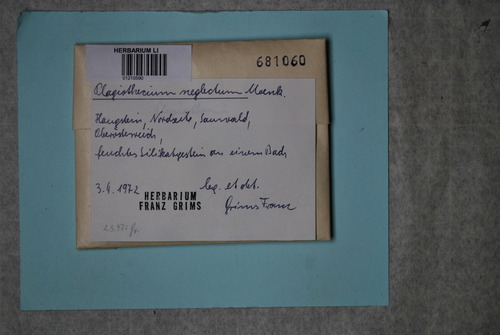 HERBARIUM LI
01210590
681060
Plagiothecium neglectum Moenk.
Haugstein, Nordseite, Sauwald,
Oberösterreich,
feuchtes Silikatgestein an einem Bach
3.4.1972 leg. et det.
HERBARIUM
FRANZ GRIMS
Grims Franz